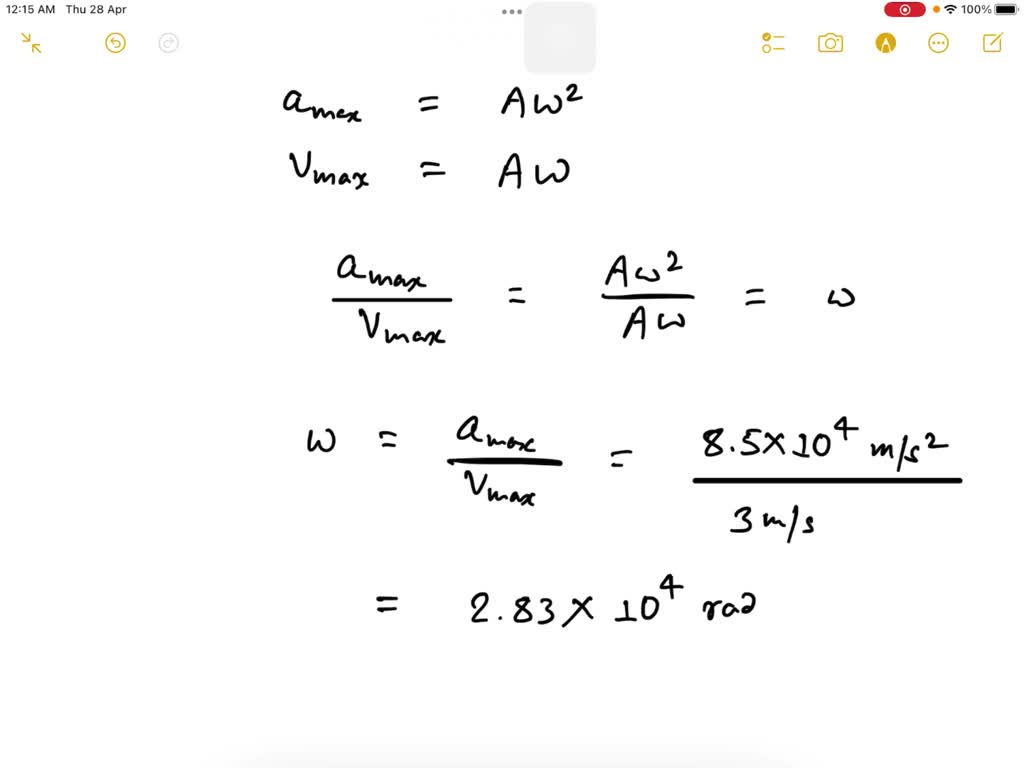 12:15 AM Thu 28 Apr 100%
a_max = Aω²
V_max = Aω
a_max / V_max = Aω² / Aω = ω
ω = a_max / V_max = 8.5×10⁴ m/s² / 3 m/s
= 2.83 × 10⁴ rad